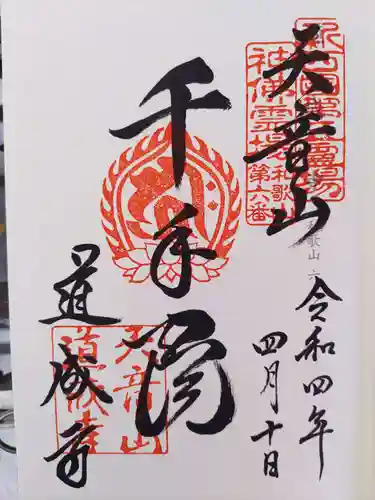 天音山
令和四年
四月十日
千手閣
道成寺
新西国第五霊場
神仏霊場
和歌山
第六番
天音山
道成寺